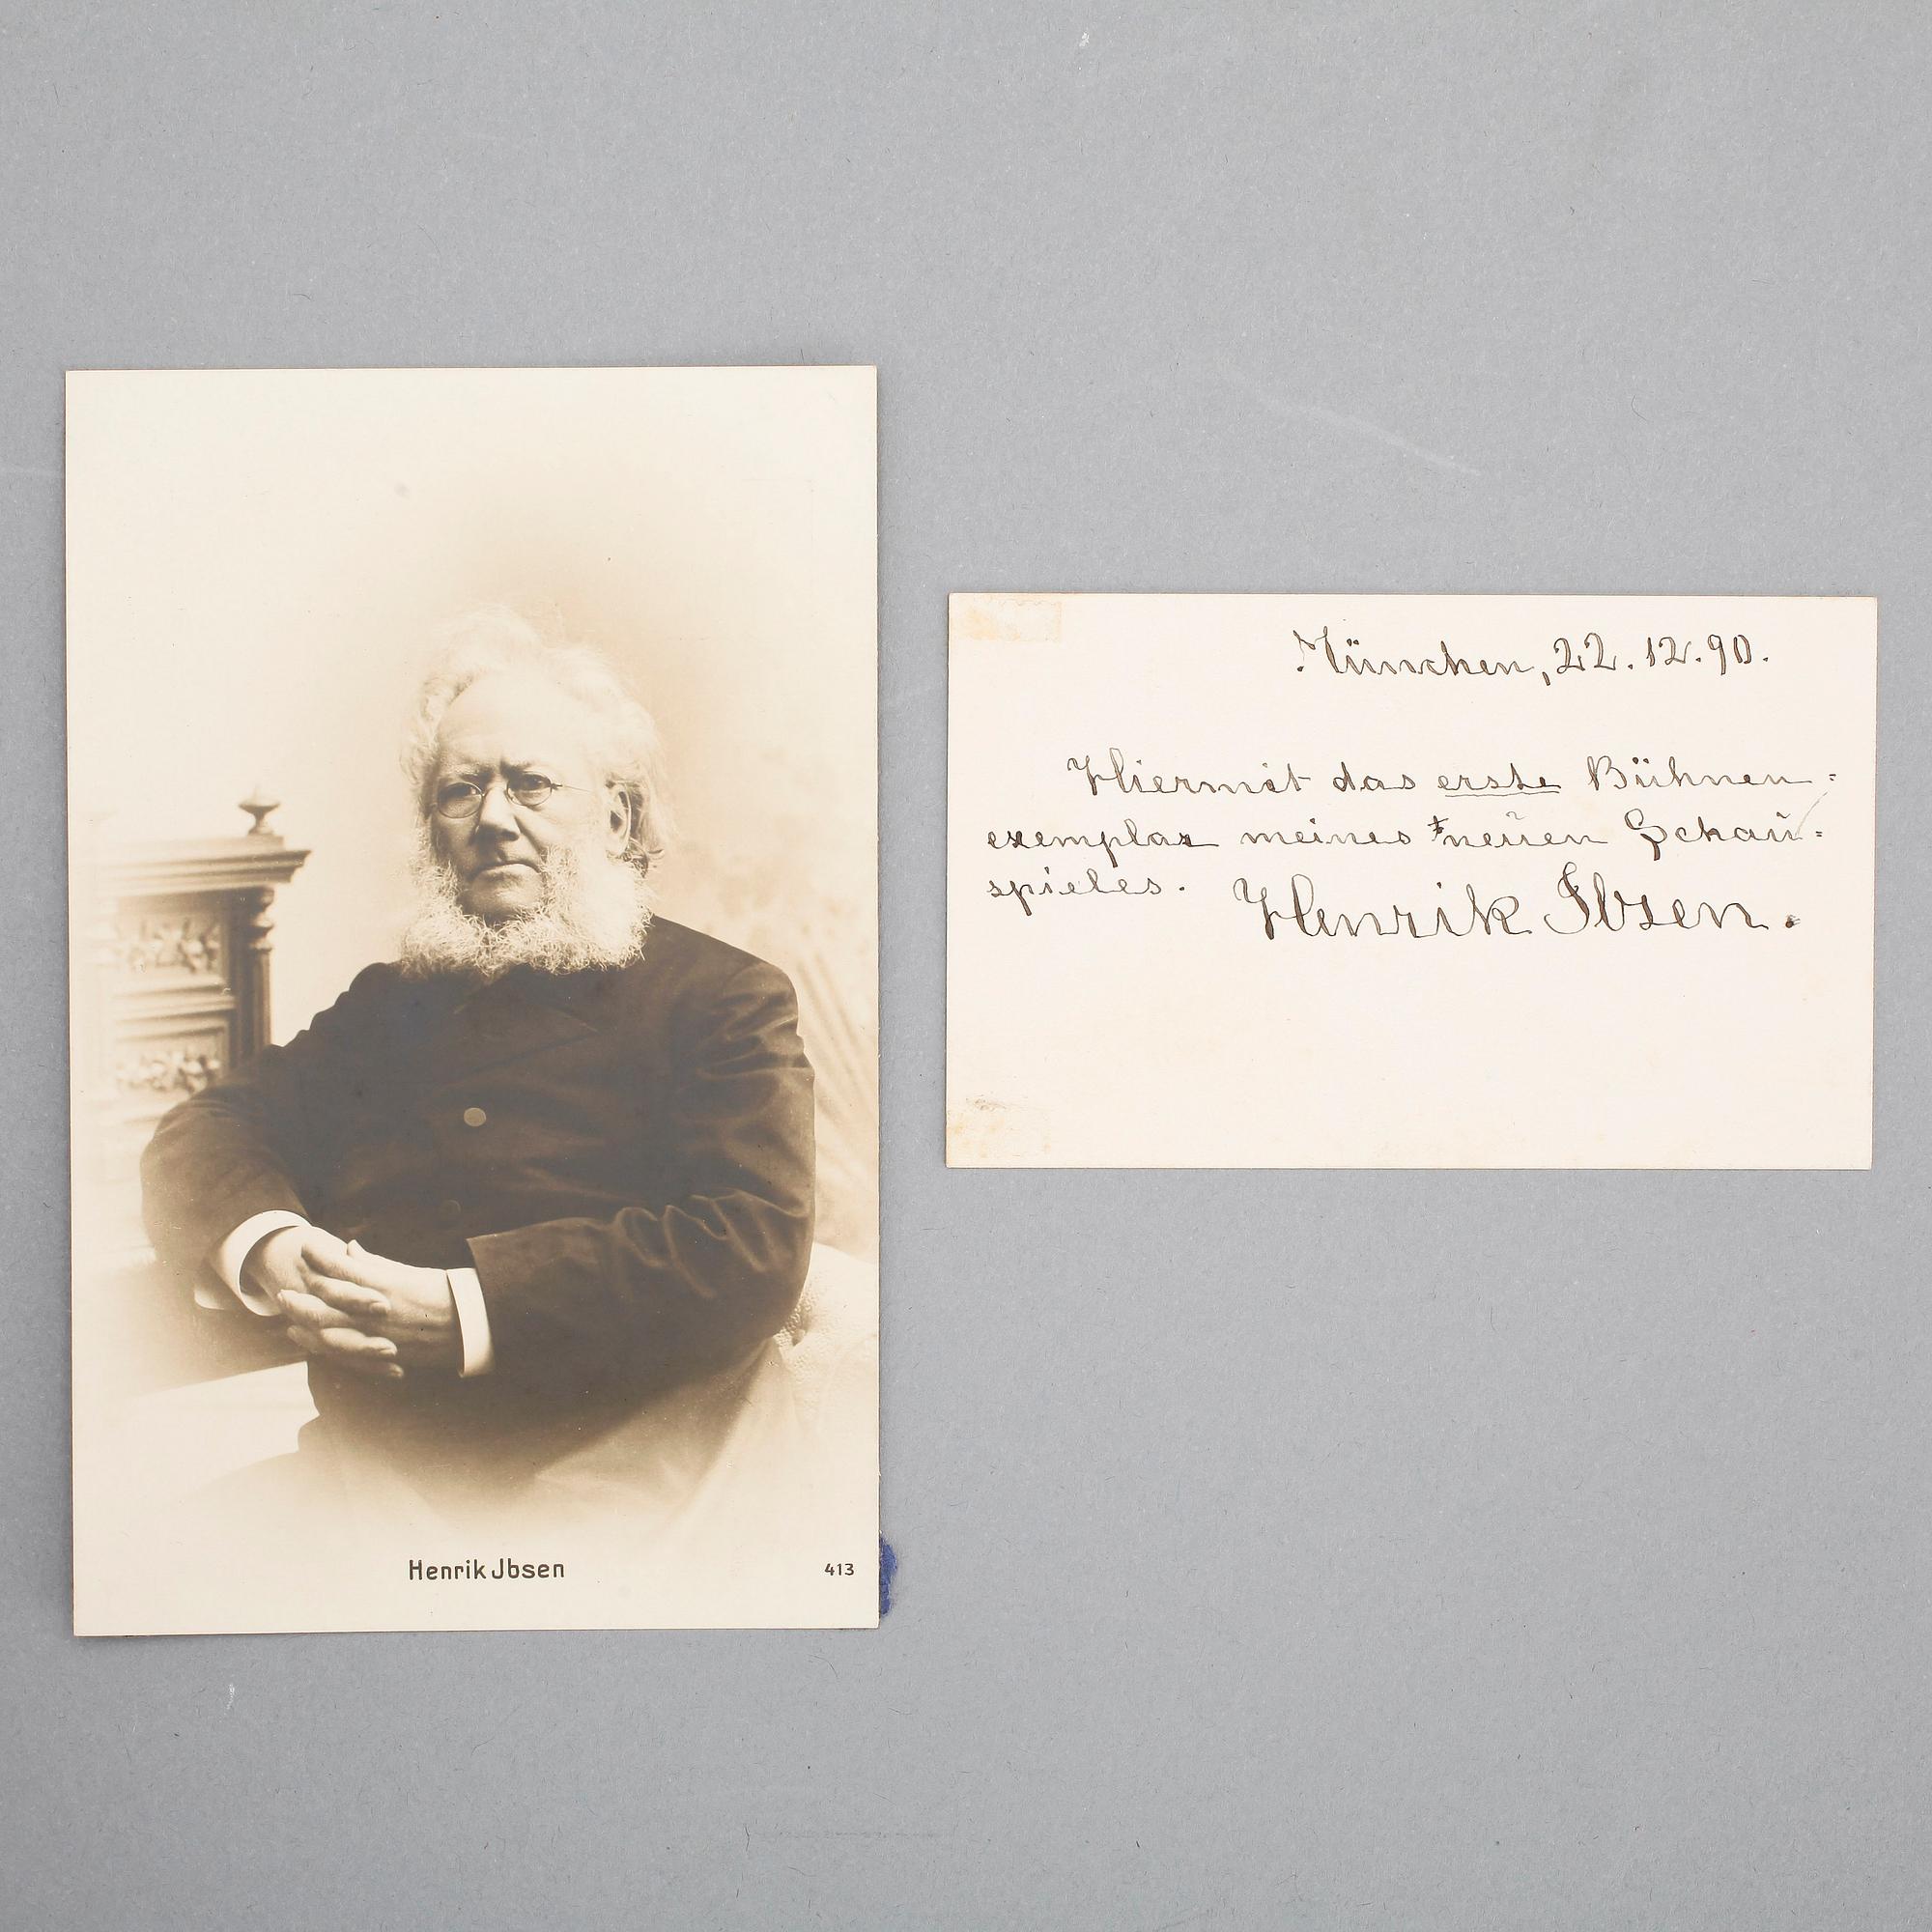 Henrik Jbsen
413
München, 22. 12. 90.
Hiermit das erste Bühnen=
exemplar meines neuen Schau=
spieles.
Henrik Ibsen.